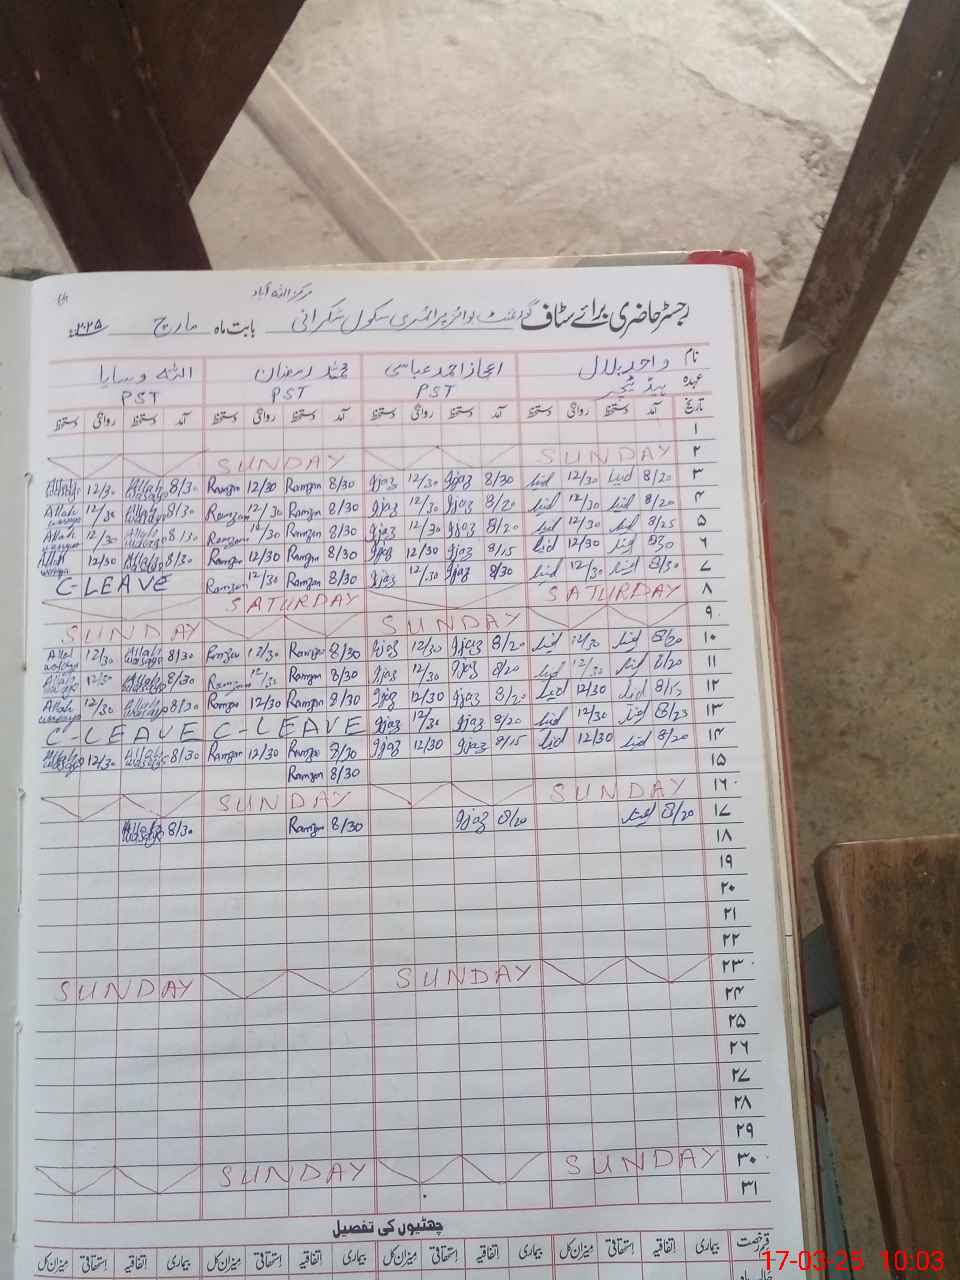 مرکز اللہ آباد
رجسٹر حاضری برائے سٹاف گورنمنٹ بوائز پرائمری سکول شکرانی بابت ماہ مارچ ۲۰۲۵ء
نام واحد بلال اعجاز احمد عباسی محمد رمضان اللہ وسایا
عہدہ ہیڈ ٹیچر PST PST PST
تاریخ آمد دستخط روانگی دستخط آمد دستخط روانگی دستخط آمد دستخط روانگی دستخط آمد دستخط روانگی دستخط
۱
۲ SUNDAY SUNDAY
۳ 8/20 12/30 Ijaz 8/30 Ijaz 12/30 Ramzan 8/30 Ramzan 12/30 Allah wasaya 8/30 Allah wasaya 12/30
۴ 8/20 12/30 Ijaz 8/20 Ijaz 12/30 Ramzan 8/30 Ramzan 12/30 Allah wasaya 8/30 Allah wasaya 12/30
۵ 8/25 12/30 Ijaz 8/20 Ijaz 12/30 Ramzan 8/30 Ramzan 12/30 Allah wasaya 8/30 Allah wasaya 12/30
۶ 12/30 Ijaz 8/15 Ijaz 12/30 Ramzan 8/30 Ramzan 12/30 Allah wasaya 8/30 Allah wasaya 12/30
۷ 8/30 12/30 Ijaz 8/30 Ijaz 12/30 Ramzan 8/30 Ramzan 12/30 C-LEAVE
۸ SATURDAY SATURDAY
۹ SUNDAY SUNDAY
۱۰ 8/20 12/30 Ijaz 8/20 Ijaz 12/30 Ramzan 8/30 Ramzan 12/30 Allah wasaya 8/30 Allah wasaya 12/30
۱۱ 8/20 12/30 Ijaz 8/20 Ijaz 12/30 Ramzan 8/30 Ramzan 12/30 Allah wasaya 8/30 Allah wasaya 12/30
۱۲ 8/15 12/30 Ijaz 8/20 Ijaz 12/30 Ramzan 8/30 Ramzan 12/30 Allah wasaya 8/30 Allah wasaya 12/30
۱۳ 8/25 12/30 Ijaz 8/20 Ijaz 12/30 C-LEAVE C-LEAVE
۱۴ 8/20 12/30 Ijaz 8/15 Ijaz 12/30 Ramzan 8/30 Ramzan 12/30 Allah wasaya 8/30 Allah wasaya 12/30
۱۵ Ramzan 8/30
۱۶ SUNDAY SUNDAY
۱۷ 8/20 Ijaz 8/20 Ramzan 8/30 Allah wasaya 8/30
۱۸
۱۹
۲۰
۲۱
۲۲
۲۳ SUNDAY SUNDAY
۲۴
۲۵
۲۶
۲۷
۲۸
۲۹
۳۰ SUNDAY SUNDAY
۳۱
چھٹیوں کی تفصیل
قسم رخصت بیماری اتفاقیہ استحقاقی میزان کل بیماری اتفاقیہ استحقاقی میزان کل بیماری اتفاقیہ استحقاقی میزان کل بیماری اتفاقیہ استحقاقی میزان کل
17-03-25 10:03